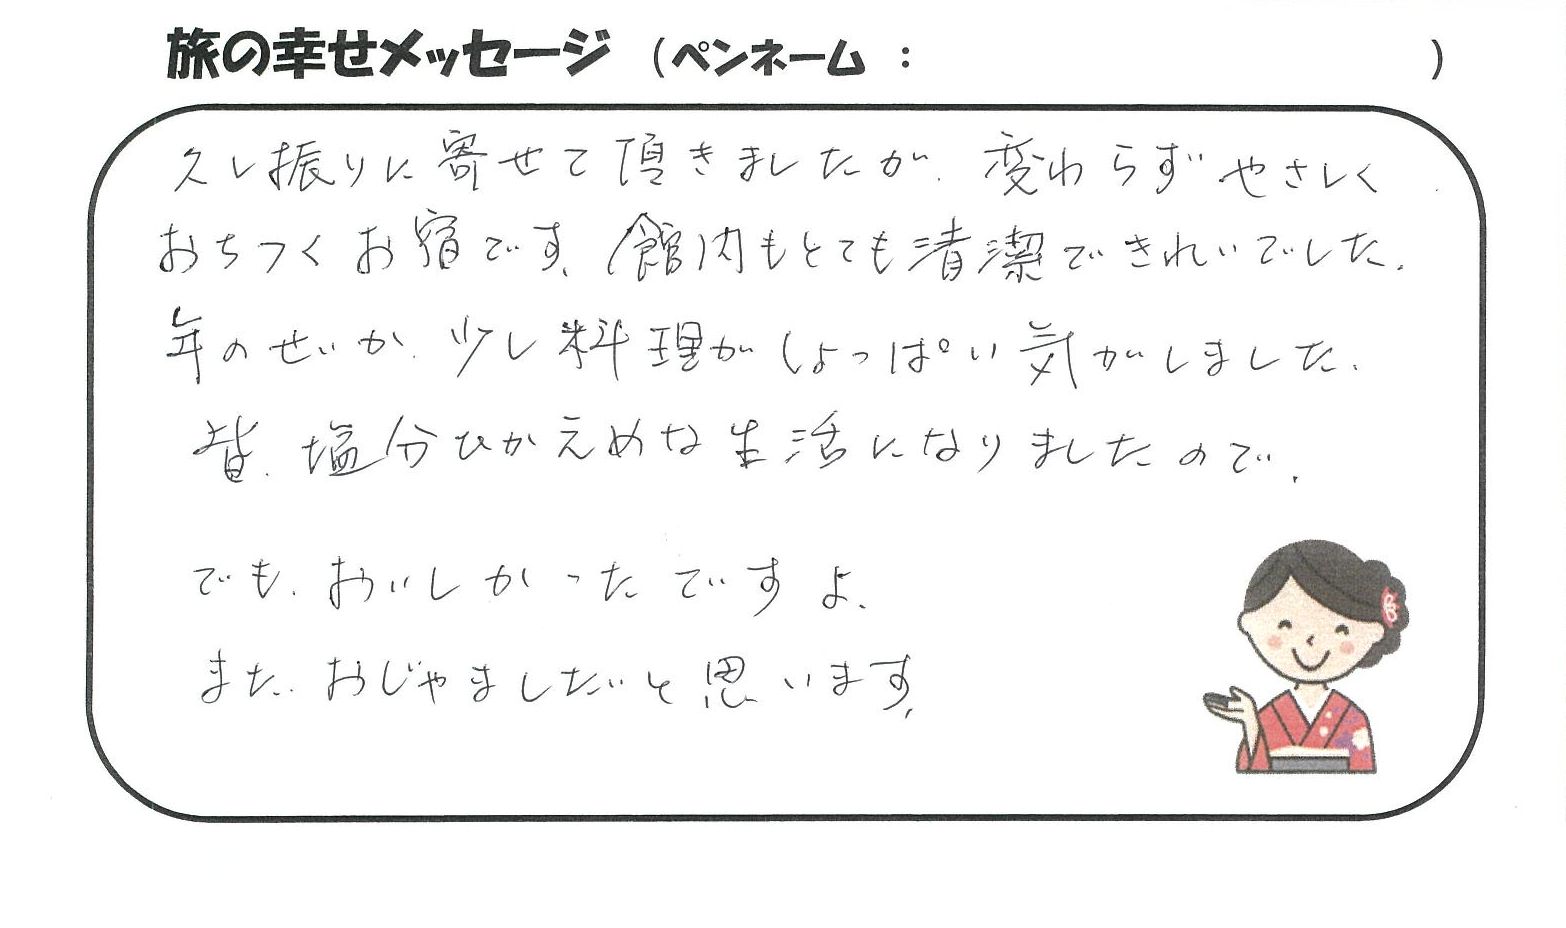 旅の幸せメッセージ （ペンネーム ： ）
久し振りに寄せて頂きましたが、変わらずやさしく
おちつくお宿です。館内もとても清潔できれいでした。
年のせいか、少し料理がしょっぱい気がしました。
皆、塩分ひかえめな生活になりましたので、
でも、おいしかったですよ。
また、おじゃましたいと思います。